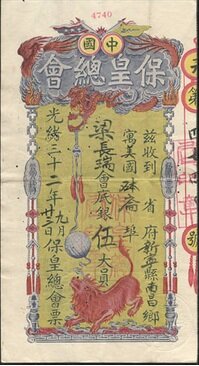 4740
中國
保皇總會
茲收到 省 府新寧縣南昌鄉
寓美國 埠
梁長瑞會底銀伍大員
光緒三十二年九月廿三日保皇總會票
號